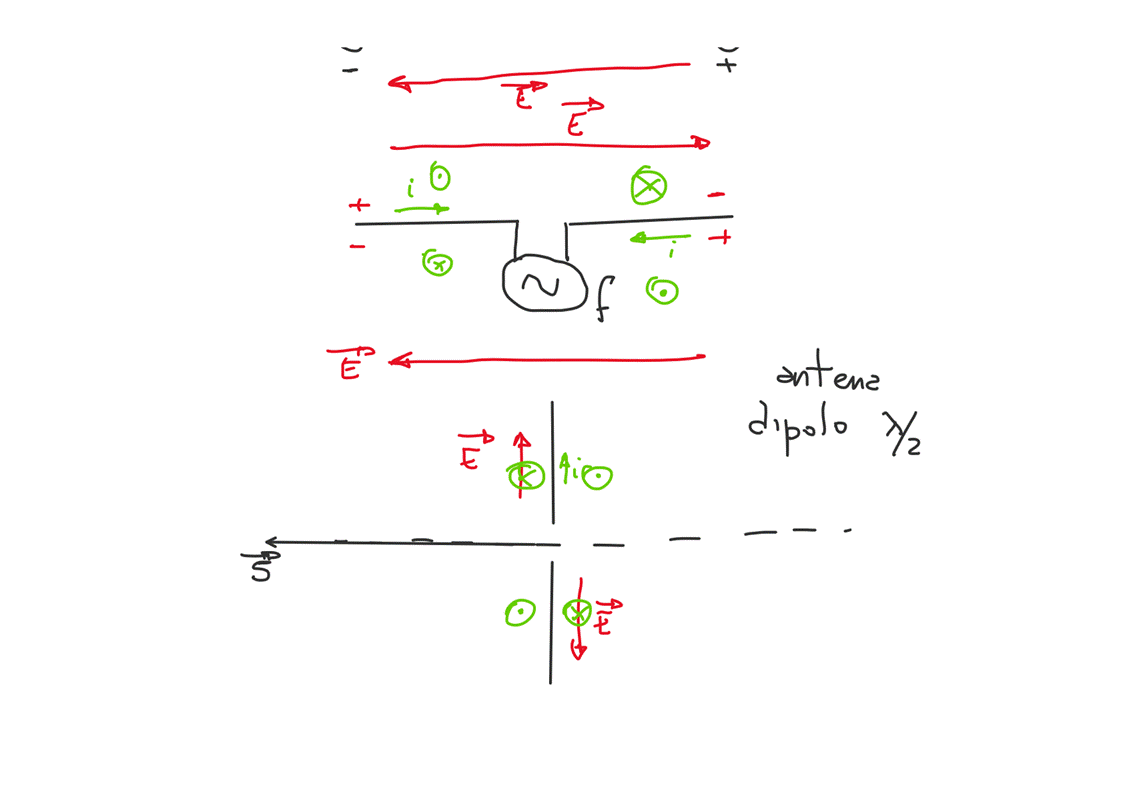 - +
E
E
i
+ -
- + i
~ f
E
antena
dipolo λ/2
E i
S
E